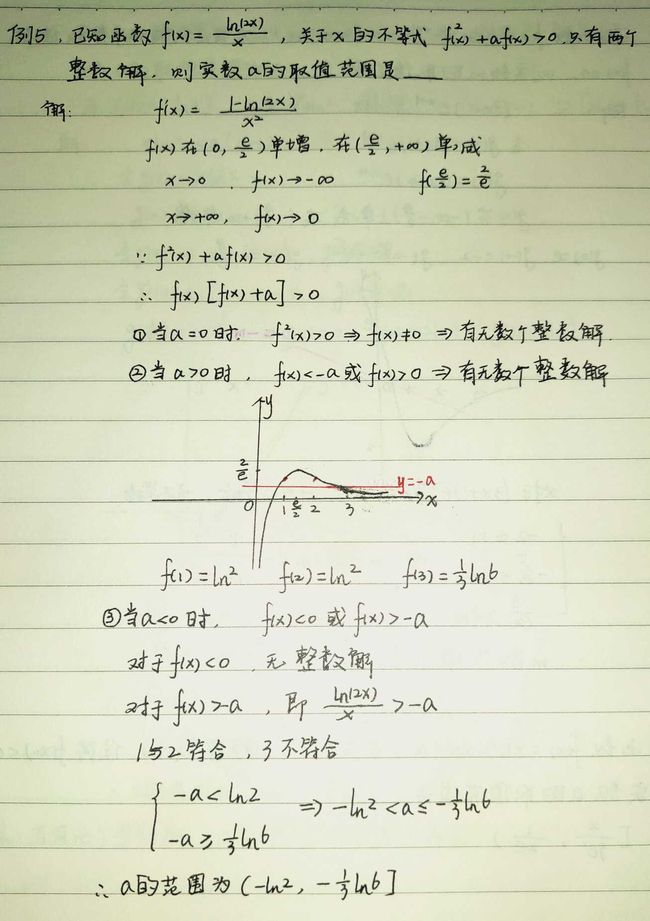 例5. 已知函数 f(x) = ln(2x)/x , 关于x的不等式 f²(x)+af(x)>0 只有两个
整数解. 则实数a的取值范围是____
解: f'(x) = 1-ln(2x)/x²
f(x)在(0, e/2)单增. 在(e/2, +∞)单减
x→0 . f(x)→-∞ f(e/2)=2/e
x→+∞, f(x)→0
∵ f²(x)+af(x)>0
∴ f(x)[f(x)+a]>0
①当a=0时. f²(x)>0 ⇒ f(x)≠0 ⇒ 有无数个整数解.
②当a>0时, f(x)<-a 或 f(x)>0 ⇒ 有无数个整数解
y
2/e
y=-a
0 1 e/2 2 3 x
f(1)=ln2 f(2)=ln2 f(3)=1/3ln6
③当a<0时, f(x)<0 或 f(x)>-a
对于f(x)<0 , 无整数解
对于f(x)>-a , 即 ln(2x)/x >-a
1与2符合, 3不符合
{ -a<ln2 ⇒ -ln2<a≤-1/3ln6
-a≥1/3ln6
∴ a的范围为 (-ln2, -1/3ln6]